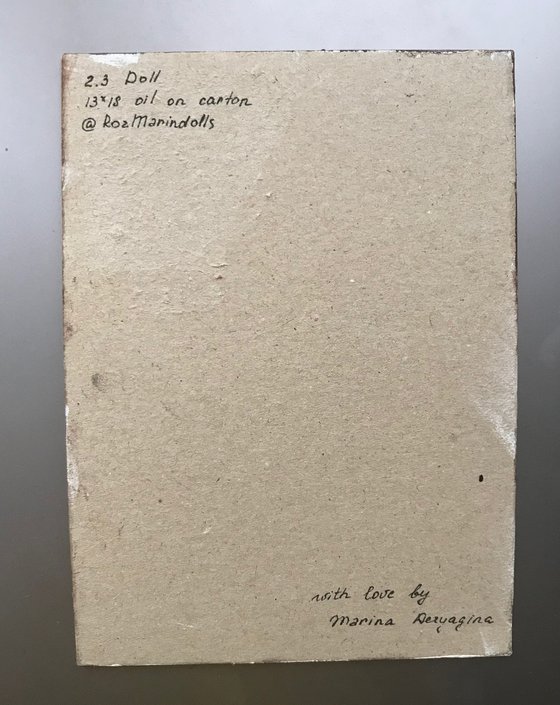 2.3 Doll
13×18 oil on carton
@RozMarindolls
with love by
Marina Deryagina